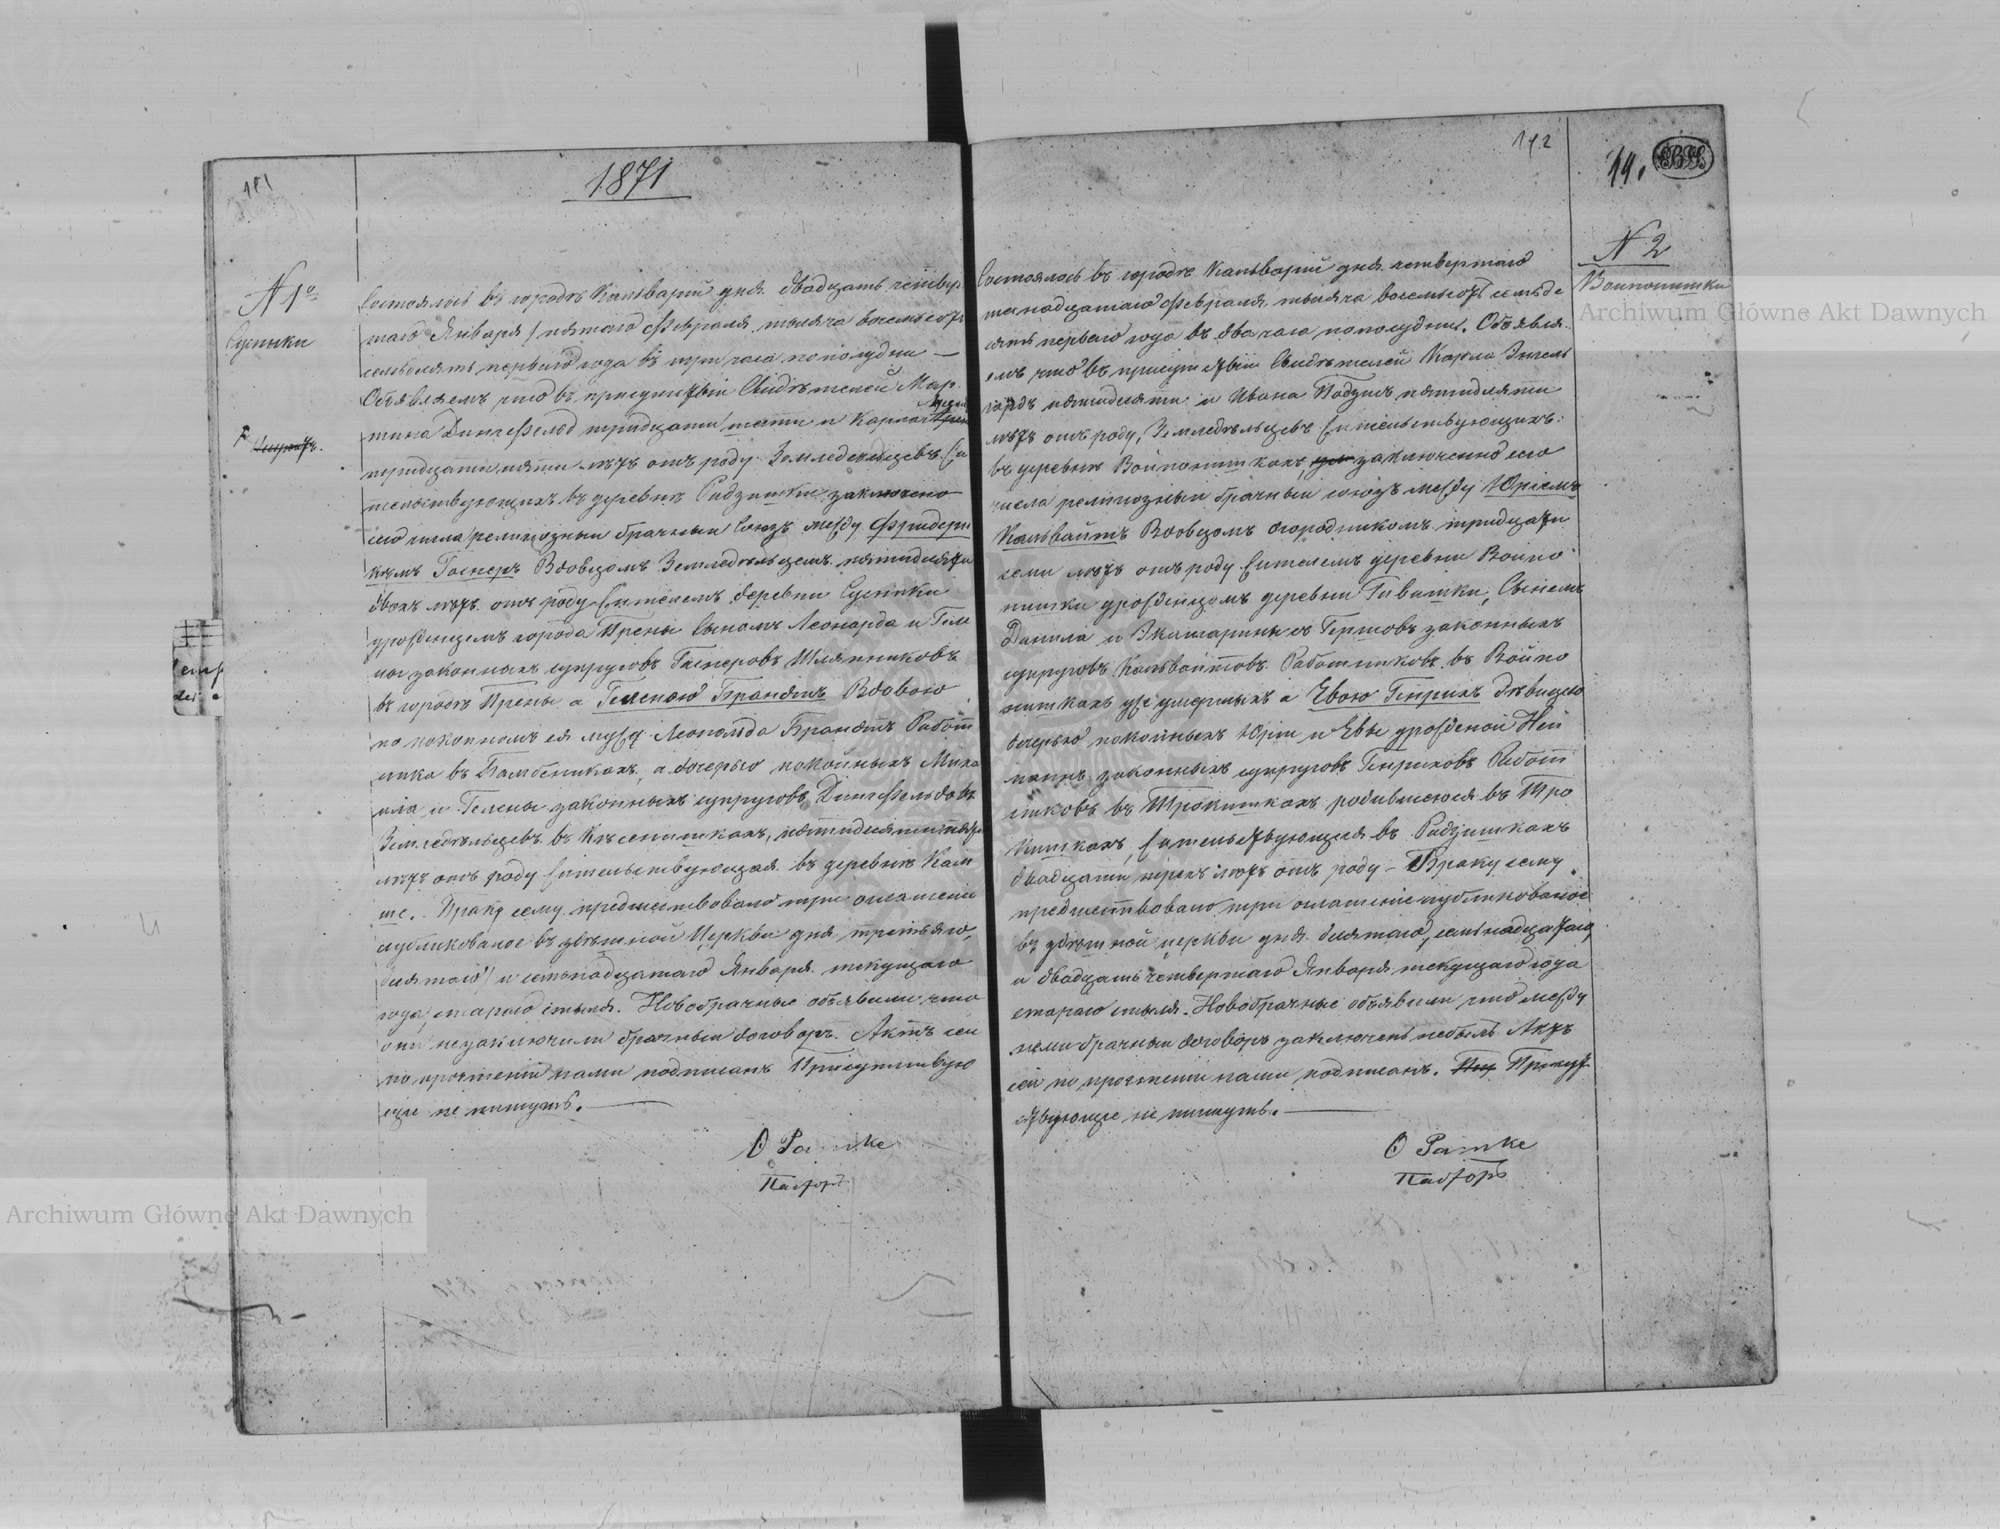 1871
N 1º
Сусники
Состоялось въ городѣ Кальваріи дня двадцать четвер
таго Января / пятаго Февраля тысяча восемьсотъ
семьдесятъ перваго года въ три часа пополудни —
Объявляемъ что въ присутствіи Свидѣтелей Мар
тина Дингфельд тридцати шести и Карла
тридцати пяти лѣтъ отъ роду Земледельцевъ жи
тельствующихъ въ деревнѣ Радзишки заключено
сего числа религіозный брачный союзъ между Фридери
комъ Гаснеръ Вдовцомъ Земледѣльцемъ пятидесяти
двохъ лѣтъ отъ роду жителемъ деревни Сусники
урожденцемъ города Прены сыномъ Леонарда и Геле
ны законныхъ супруговъ Гаснеровъ Шляпниковъ
въ городѣ Прены а Геленою Брандтъ Вдовою
по покойномъ ея мужѣ Леопольда Брандтъ Работ
ника въ Бамбеникахъ, а дочерью покойныхъ Миха
ила и Гелены законныхъ супруговъ Дингфельдовъ
Земледѣльцевъ въ пятидесяти
лѣтъ отъ роду жительствующая въ деревнѣ Кам
ше. Браку сему предшествовало три оглашеніе
публикованое въ здѣшной Церкви дня третьяго,
десятаго и семьнадцатаго Января текущаго
года стараго стыля. Новобрачные объявили что
они незаключили брачный договоръ. Актъ сей
по прочтеніи нами подписанъ Присутствую
щіе не пишутъ. —
О Ратке
Пасторъ
142
N 2
Войпонишки
Состоялось въ городѣ Кальваріи дня четвертаго
надцатаго Февраля тысяча восемьсотъ семьде
сятъ перваго года въ два часа пополудни. Объявля
емъ что въ присутствіи Свидѣтелей Карла Энгель
гардъ пятидесяти и Ивана пятидесяти
лѣтъ отъ роду, Земледѣльцевъ жительствующихъ
въ деревнѣ Войпонишкахъ, заключено сего
числа религіозный брачный союзъ между Юріемъ
Кальвайтъ Вдовцомъ огородникомъ тридцати
семи лѣтъ отъ роду жителемъ деревни Войпо
нишки урожденцомъ деревни Гивишки, Сыномъ
Данила и Экатарины съ законныхъ
супруговъ Кальвайтовъ Работниковъ въ Войпо
нишкахъ уже умершыхъ а Евою Генрихъ дѣвицею
дочерью покойныхъ Юрія и Евы урожденой Ней
манъ законныхъ супруговъ Генриховъ Работ
никовъ въ Трокишкахъ родившеюся въ Тро
кишкахъ, жительствующая въ Радзишкахъ
двадцати трехъ лѣтъ отъ роду — Браку сему
предшествовало три оглашеніе публикованое
въ здѣшной церкви дня десятаго, семьнадцатаго
и двадцать четвертаго Января текущаго года
стараго стыля. Новобрачные объявили что между
нами брачный договоръ заключенъ небылъ Актъ
сей по прочтеніи нами подписанъ. Присут
ствующіе не пишутъ. —
О Ратке
Пасторъ
Archiwum Główne Akt Dawnych
Archiwum Główne Akt Dawnych